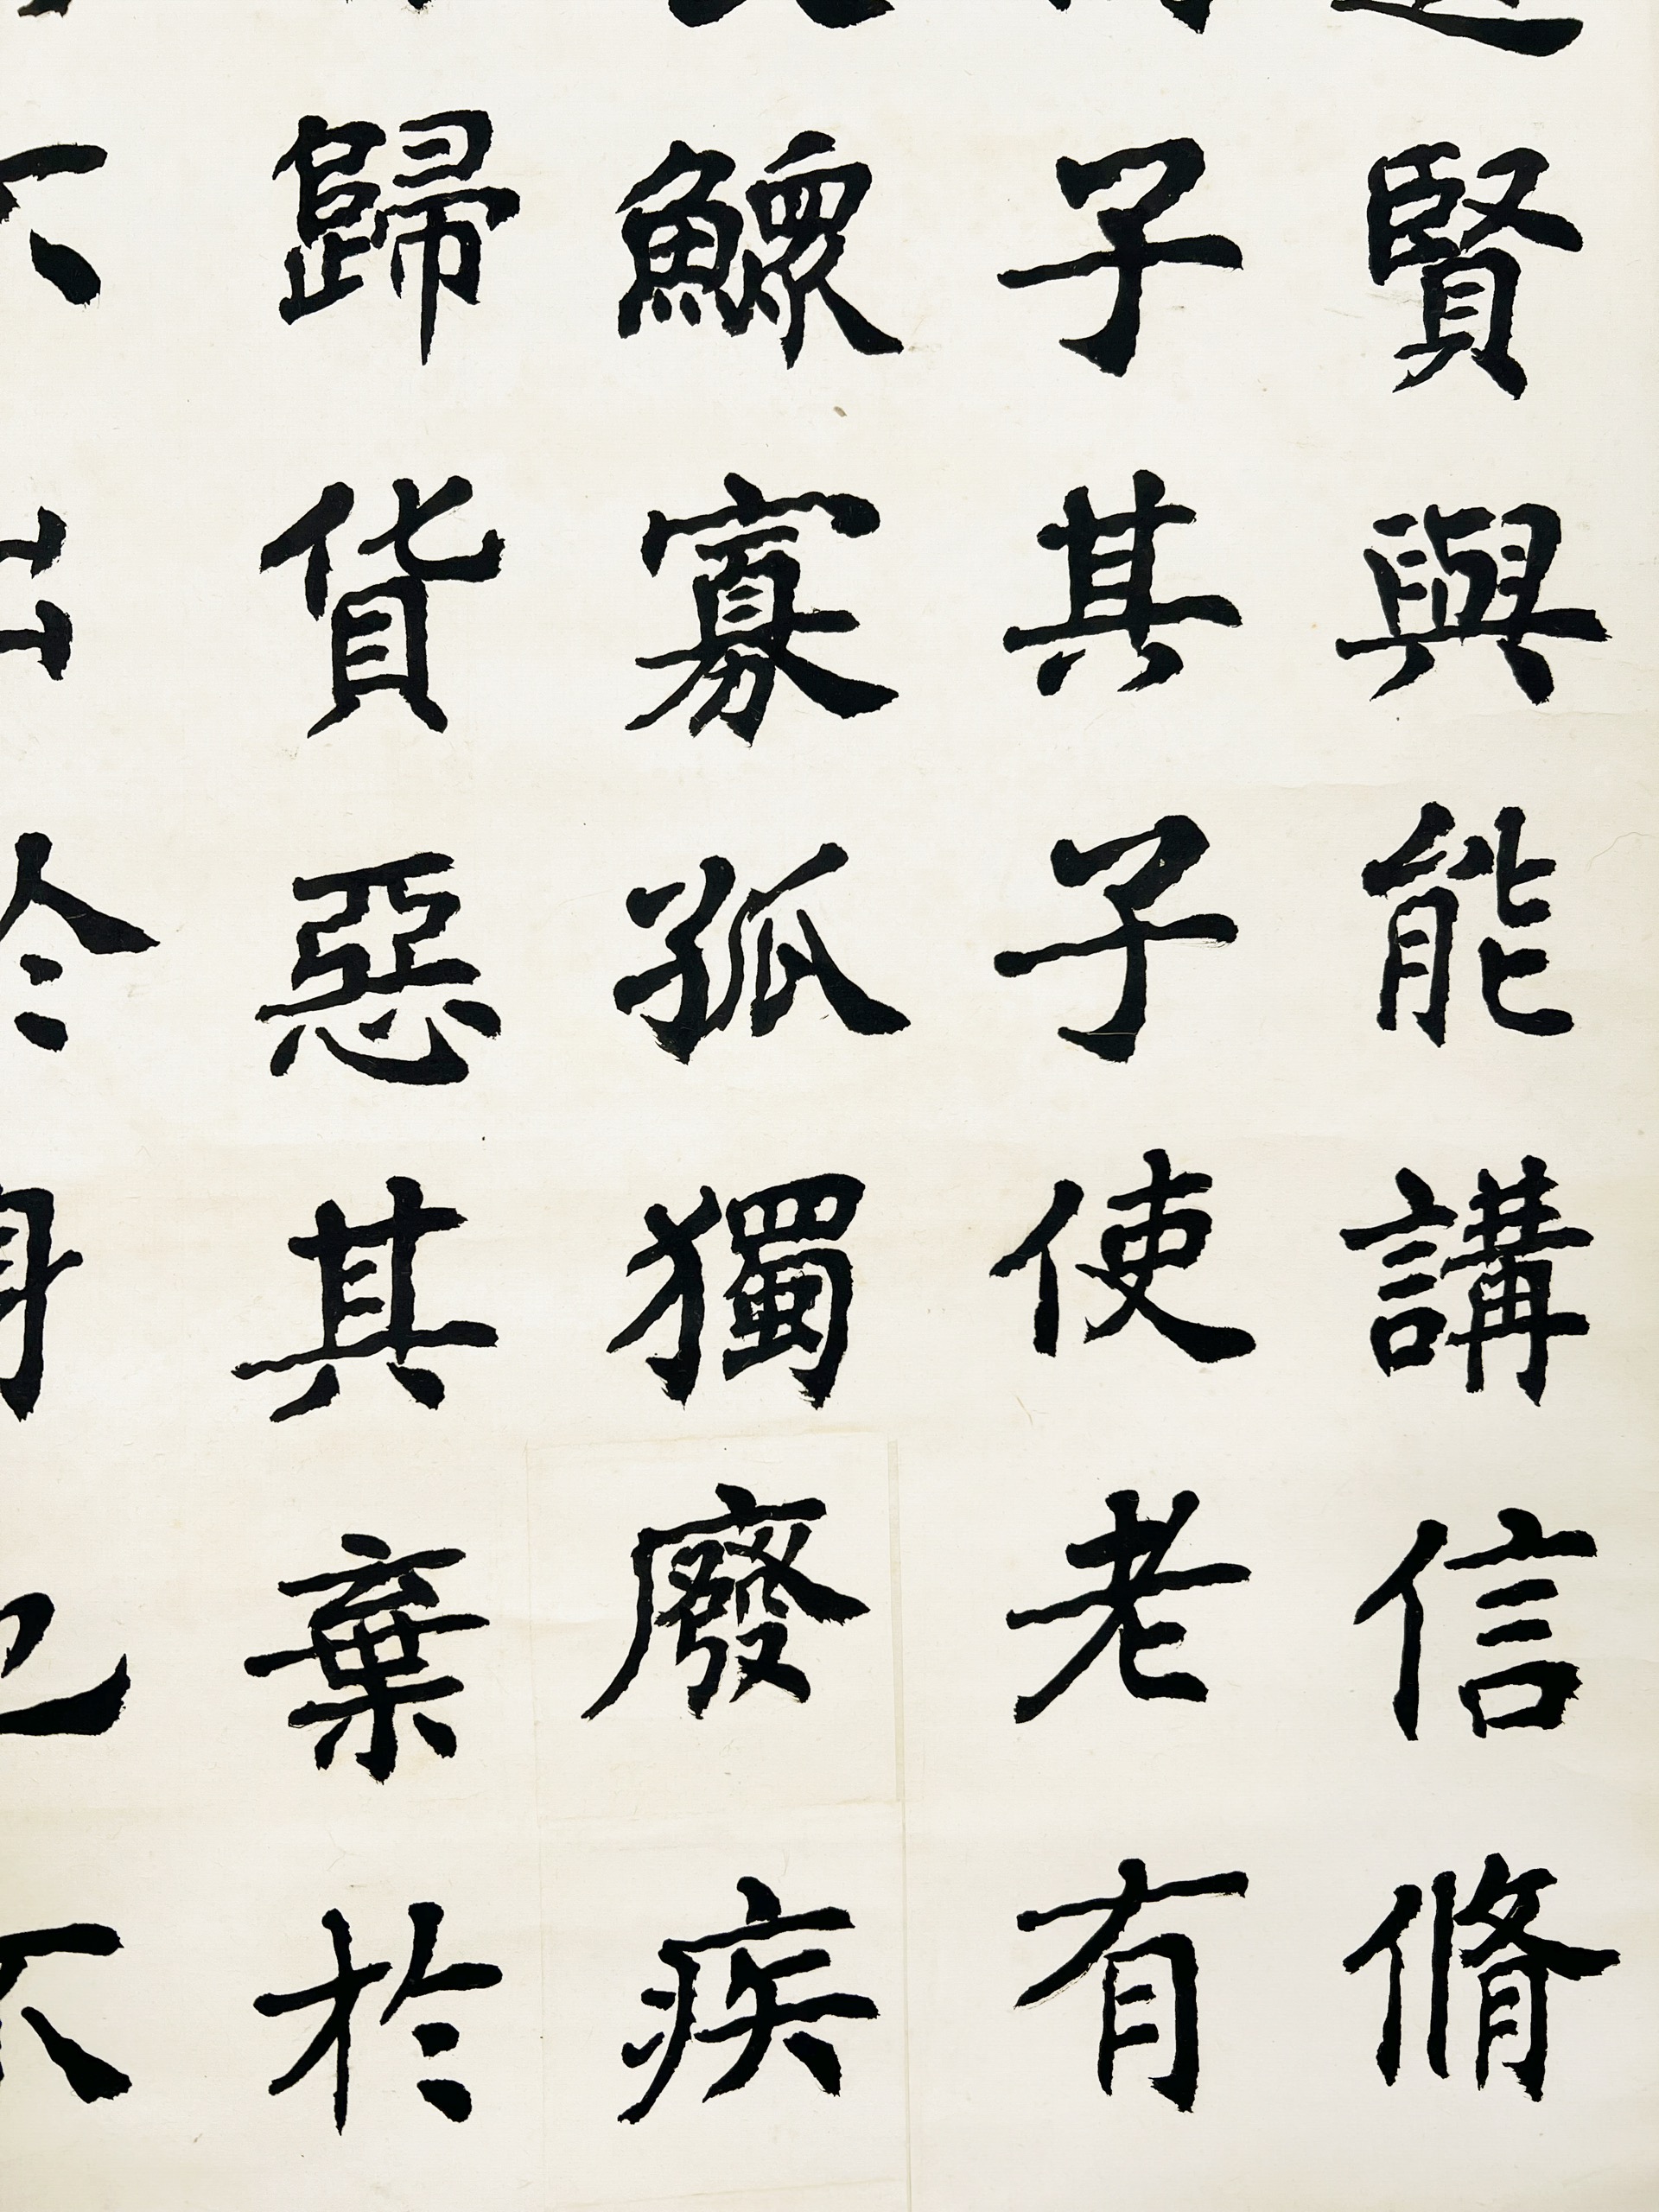 賢與能講信脩
子其子使老有
鰥寡孤獨廢疾
歸貨惡其棄於